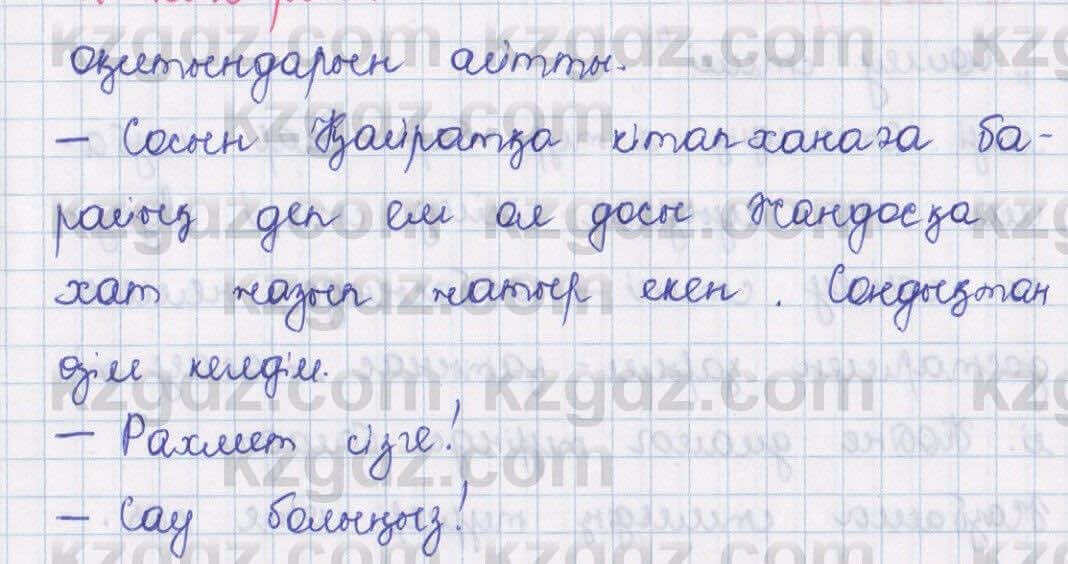 оқитындарын айтты.
– Сосын Қайратқа кітапханаға ба-
райық деп ем ол досы Жандосқа
хат жазып жатыр екен. Сондықтан
өзім келдім.
– Рахмет сізге!
– Сау болыңыз!
kzgdz.com